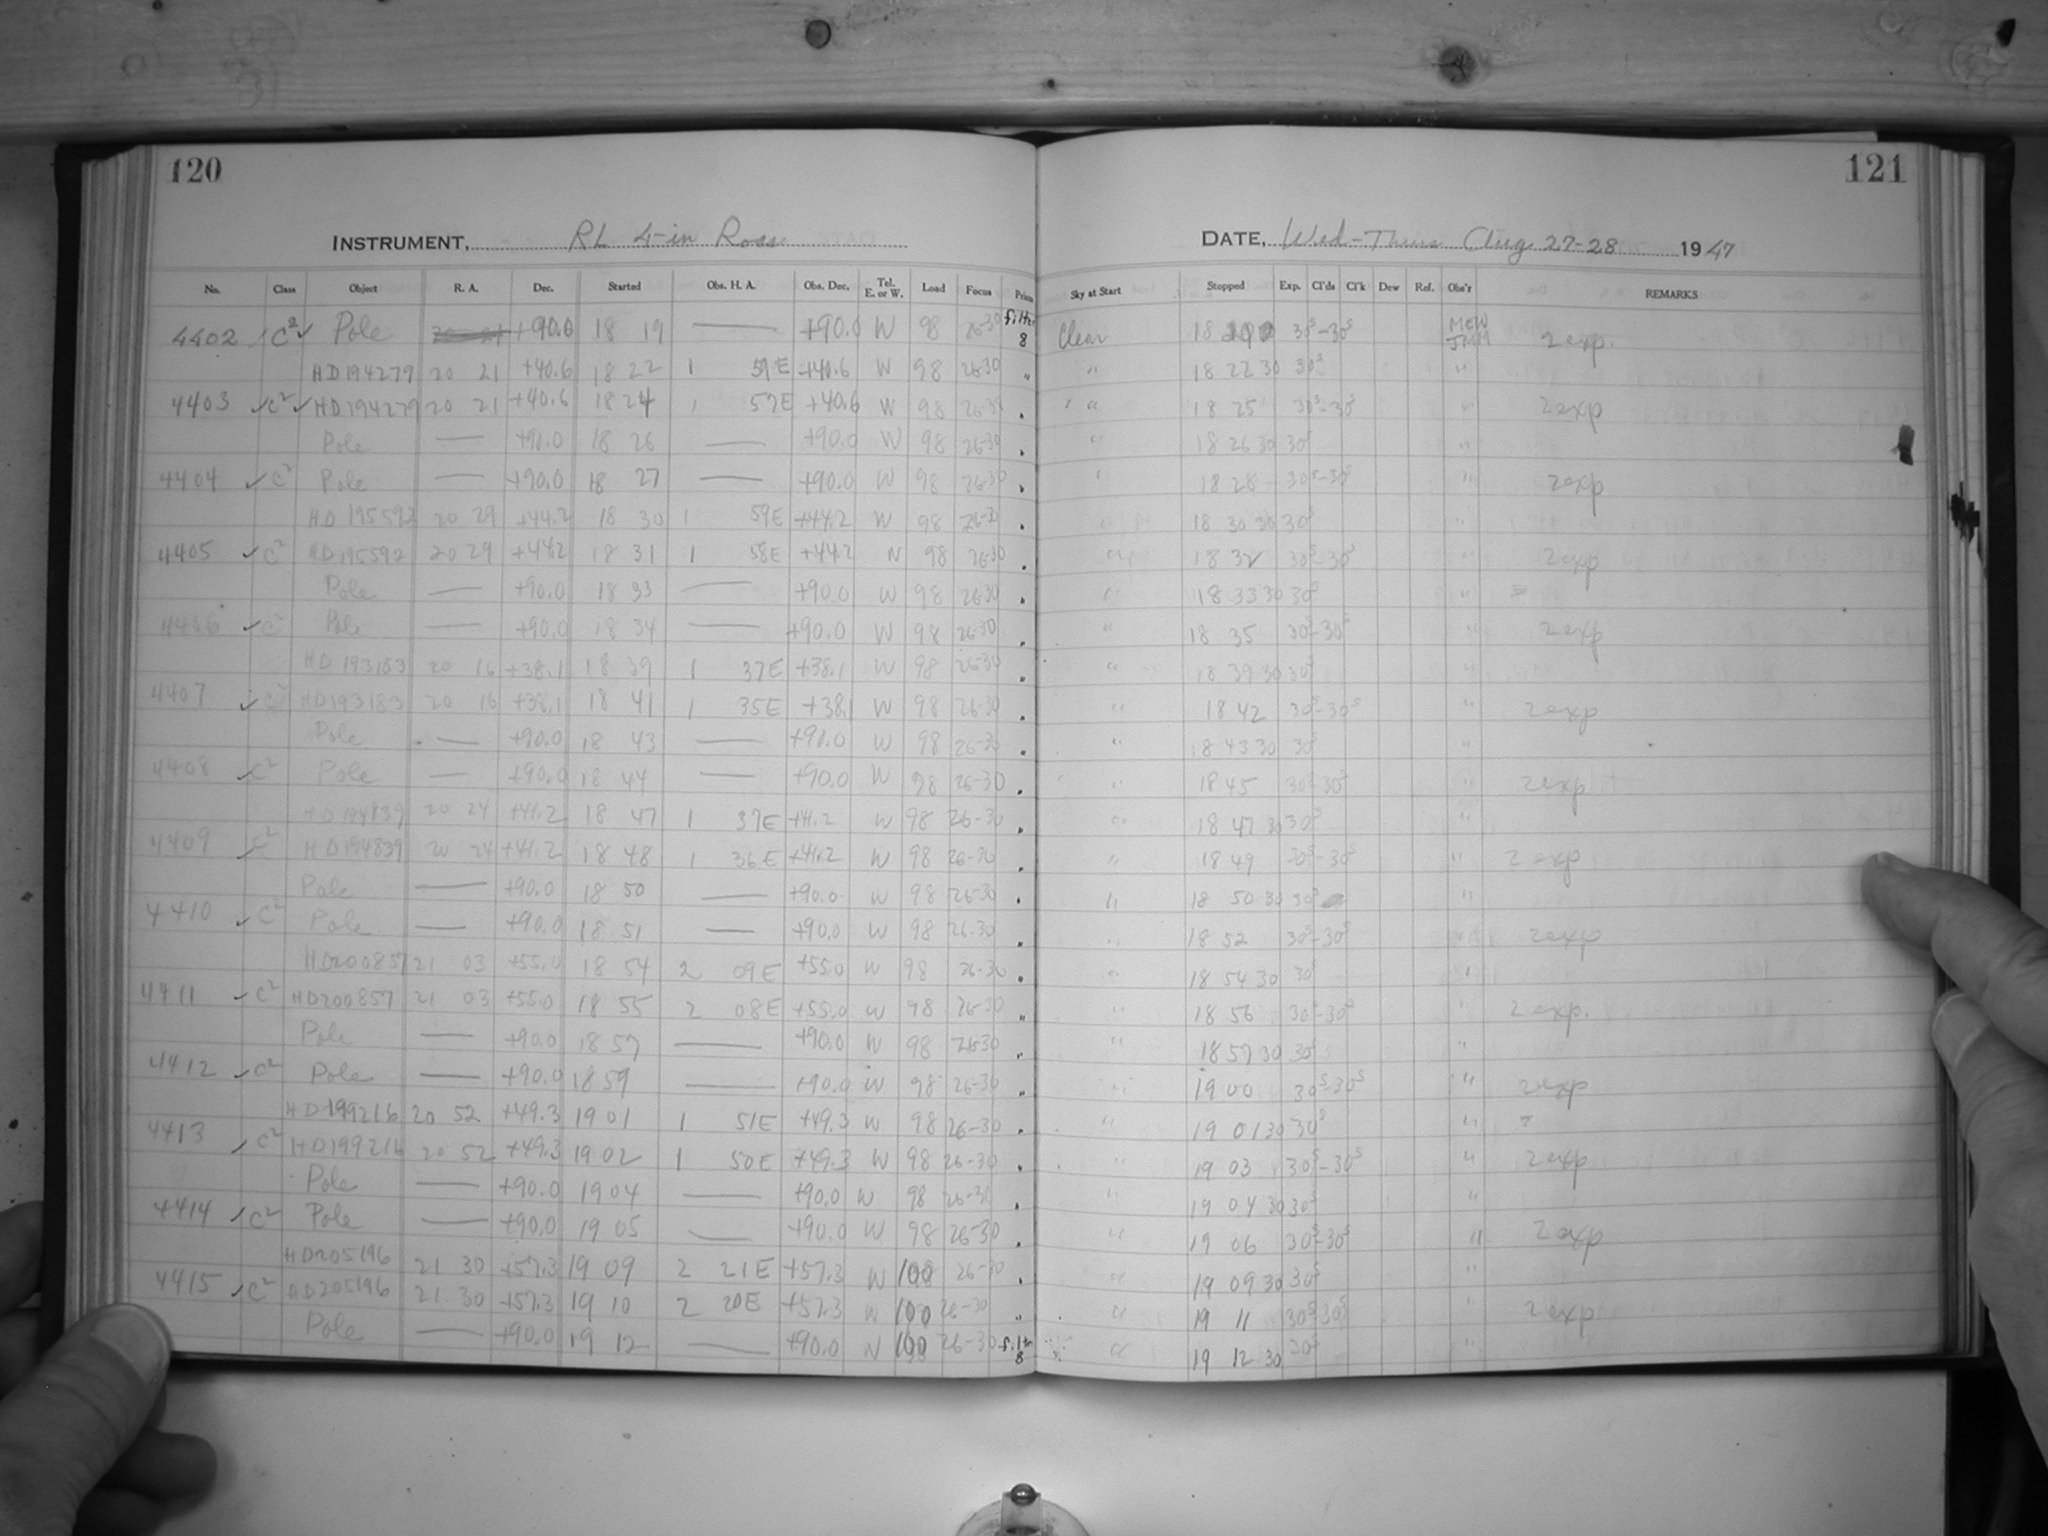 120
121
INSTRUMENT, RL 4-in Ross
DATE, Wed-Thurs Aug 27-28 1947
No. Class Object R. A. Dec. Started Obs. H. A. Obs. Dec. Tel. E. or W. Load Focus Prism Sky at Start Stopped Exp. Cl'ds Cl'k Dew Ref. Obs'r REMARKS
4402 ✓ C² ✓ Pole +90.0 18 19 — +90.0 W 98 26-30 filter 8 Clear 18 30ˢ-30ˢ MEW JMM 2 exp.
HD194279 20 21 +40.6 18 22 1 59E +40.6 W 98 26-30 " " 18 22 30 30ˢ "
4403 ✓ C² ✓ HD194279 20 21 +40.6 18 24 1 57E +40.6 W 98 26-30 " " 18 25 30ˢ-30ˢ " 2 exp
Pole — +90.0 18 26 — +90.0 W 98 26-30 " " 18 26 30 30ˢ "
4404 ✓ C² Pole — +90.0 18 27 — +90.0 W 98 26-30 " " 18 28 30ˢ-30ˢ " 2 exp
HD195592 20 29 +44.2 18 30 1 59E +44.2 W 98 26-30 " " 18 30 30 30ˢ "
4405 ✓ C² HD195592 20 29 +44.2 18 31 1 58E +44.2 W 98 26-30 " " 18 32 30ˢ-30ˢ " 2 exp
Pole — +90.0 18 33 — +90.0 W 98 26-30 " " 18 33 30 30ˢ "
4406 ✓ C² Pole — +90.0 18 34 — +90.0 W 98 26-30 " " 18 35 30ˢ-30ˢ " 2 exp
HD193183 20 16 +38.1 18 39 1 37E +38.1 W 98 26-30 " " 18 39 30 30ˢ "
4407 ✓ C² HD193183 20 16 +38.1 18 41 1 35E +38.1 W 98 26-30 " " 18 42 30ˢ-30ˢ " 2 exp
Pole — +90.0 18 43 — +90.0 W 98 26-30 " " 18 43 30 30ˢ "
4408 ✓ C² Pole — +90.0 18 44 — +90.0 W 98 26-30 " " 18 45 30ˢ-30ˢ " 2 exp
HD194839 20 24 +41.2 18 47 1 37E +41.2 W 98 26-30 " " 18 47 30 30ˢ "
4409 ✓ C² HD194839 20 24 +41.2 18 48 1 36E +41.2 W 98 26-30 " " 18 49 30ˢ-30ˢ " 2 exp
Pole — +90.0 18 50 — +90.0 W 98 26-30 " " 18 50 30 30ˢ "
4410 ✓ C² Pole — +90.0 18 51 — +90.0 W 98 26-30 " " 18 52 30ˢ-30ˢ " 2 exp
HD200857 21 03 +55.0 18 54 2 09E +55.0 W 98 26-30 " " 18 54 30 30ˢ "
4411 ✓ C² HD200857 21 03 +55.0 18 55 2 08E +55.0 W 98 26-30 " " 18 56 30ˢ-30ˢ " 2 exp.
Pole — +90.0 18 57 — +90.0 W 98 26-30 " " 18 57 30 30ˢ "
4412 ✓ C² Pole — +90.0 18 59 — +90.0 W 98 26-30 " " 19 00 30ˢ-30ˢ " 2 exp
HD199216 20 52 +49.3 19 01 1 51E +49.3 W 98 26-30 " " 19 01 30 30ˢ "
4413 ✓ C² HD199216 20 52 +49.3 19 02 1 50E +49.3 W 98 26-30 " " 19 03 30ˢ-30ˢ " 2 exp
Pole — +90.0 19 04 — +90.0 W 98 26-30 " " 19 04 30 30ˢ "
4414 ✓ C² Pole — +90.0 19 05 — +90.0 W 98 26-30 " " 19 06 30ˢ-30ˢ " 2 exp
HD205196 21 30 +57.3 19 09 2 21E +57.3 W 100 26-30 " " 19 09 30 30ˢ "
4415 ✓ C² HD205196 21 30 +57.3 19 10 2 20E +57.3 W 100 26-30 " " 19 11 30ˢ-30ˢ " 2 exp
Pole — +90.0 19 12 — +90.0 W 100 26-30 filter 8 " 19 12 30 30ˢ "